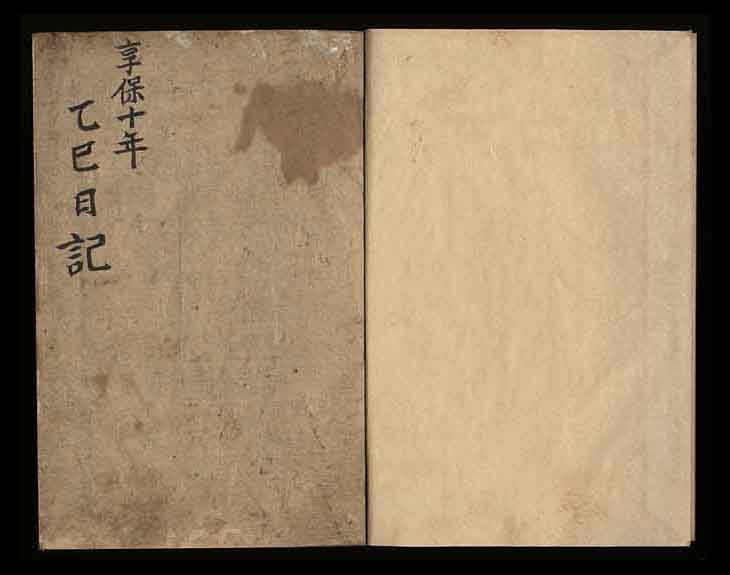 享保十年
乙巳日記